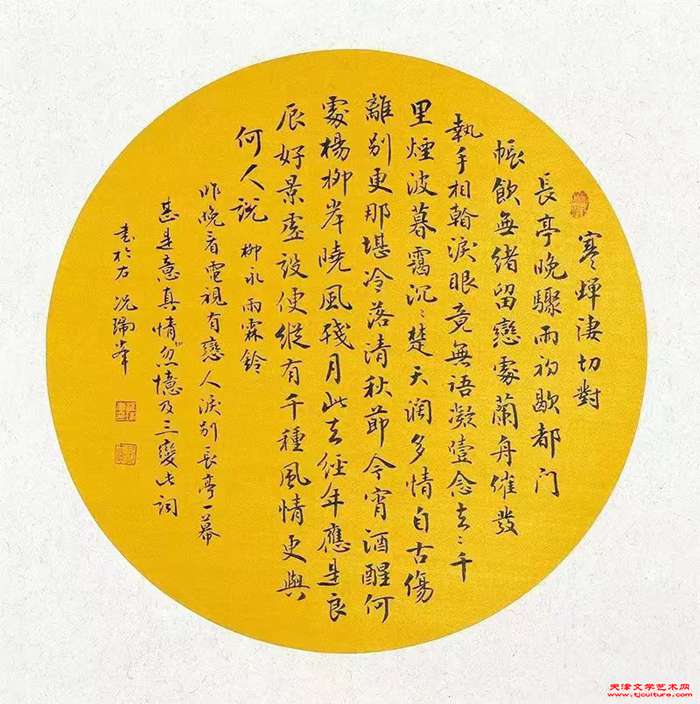 寒蟬淒切對
長亭晚驟雨初歇都门
帳飲無緒留戀處蘭舟催發
執手相看淚眼竟無語凝噎念去〻千
里煙波暮靄沉〻楚天阔多情自古傷
離别更那堪冷落清秋節今宵酒醒何
處楊柳岸曉風殘月此去經年應是良
辰好景虛設便縱有千種風情更與
何人說 柳永雨霖鈴
昨晚看電視有戀人淚别長亭一幕
甚是意真情忽憶及三變此詞
書於右 冼瑞峯
天津文学艺术网
www.tjculture.com